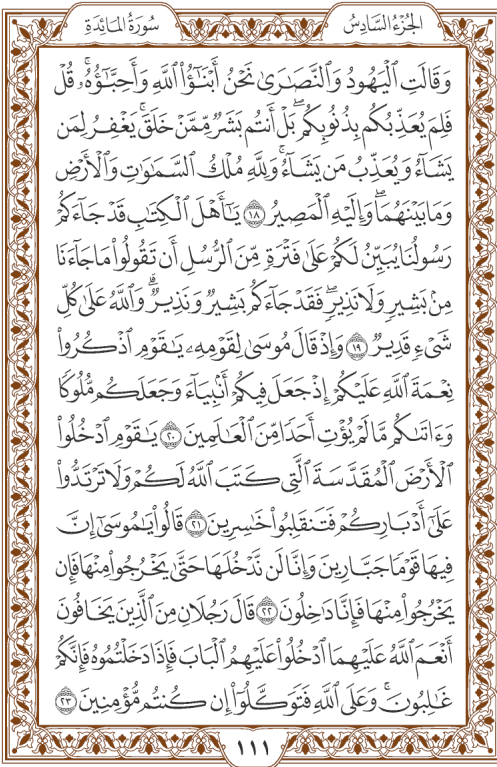 الجُزْءُ السَّادِسُ سُورَةُ المَائِدَةِ
وَقَالَتِ ٱلْيَهُودُ وَٱلنَّصَٰرَىٰ نَحْنُ أَبْنَٰٓؤُا۟ ٱللَّهِ وَأَحِبَّٰٓؤُهُۥ ۚ قُلْ
فَلِمَ يُعَذِّبُكُم بِذُنُوبِكُم ۖ بَلْ أَنتُم بَشَرٌ مِّمَّنْ خَلَقَ ۚ يَغْفِرُ لِمَن
يَشَآءُ وَيُعَذِّبُ مَن يَشَآءُ ۚ وَلِلَّهِ مُلْكُ ٱلسَّمَٰوَٰتِ وَٱلْأَرْضِ
وَمَا بَيْنَهُمَا ۖ وَإِلَيْهِ ٱلْمَصِيرُ ١٨ يَٰٓأَهْلَ ٱلْكِتَٰبِ قَدْ جَآءَكُمْ
رَسُولُنَا يُبَيِّنُ لَكُمْ عَلَىٰ فَتْرَةٍ مِّنَ ٱلرُّسُلِ أَن تَقُولُوا۟ مَا جَآءَنَا
مِنۢ بَشِيرٍ وَلَا نَذِيرٍ ۖ فَقَدْ جَآءَكُم بَشِيرٌ وَنَذِيرٌ ۗ وَٱللَّهُ عَلَىٰ كُلِّ
شَىْءٍ قَدِيرٌ ١٩ وَإِذْ قَالَ مُوسَىٰ لِقَوْمِهِۦ يَٰقَوْمِ ٱذْكُرُوا۟
نِعْمَةَ ٱللَّهِ عَلَيْكُمْ إِذْ جَعَلَ فِيكُمْ أَنۢبِيَآءَ وَجَعَلَكُم مُّلُوكًا
وَءَاتَىٰكُم مَّا لَمْ يُؤْتِ أَحَدًا مِّنَ ٱلْعَٰلَمِينَ ٢٠ يَٰقَوْمِ ٱدْخُلُوا۟
ٱلْأَرْضَ ٱلْمُقَدَّسَةَ ٱلَّتِى كَتَبَ ٱللَّهُ لَكُمْ وَلَا تَرْتَدُّوا۟
عَلَىٰٓ أَدْبَارِكُمْ فَتَنقَلِبُوا۟ خَٰسِرِينَ ٢١ قَالُوا۟ يَٰمُوسَىٰٓ إِنَّ
فِيهَا قَوْمًا جَبَّارِينَ وَإِنَّا لَن نَّدْخُلَهَا حَتَّىٰ يَخْرُجُوا۟ مِنْهَا فَإِن
يَخْرُجُوا۟ مِنْهَا فَإِنَّا دَٰخِلُونَ ٢٢ قَالَ رَجُلَانِ مِنَ ٱلَّذِينَ يَخَافُونَ
أَنْعَمَ ٱللَّهُ عَلَيْهِمَا ٱدْخُلُوا۟ عَلَيْهِمُ ٱلْبَابَ فَإِذَا دَخَلْتُمُوهُ فَإِنَّكُمْ
غَٰلِبُونَ ۚ وَعَلَى ٱللَّهِ فَتَوَكَّلُوٓا۟ إِن كُنتُم مُّؤْمِنِينَ ٢٣
١١١